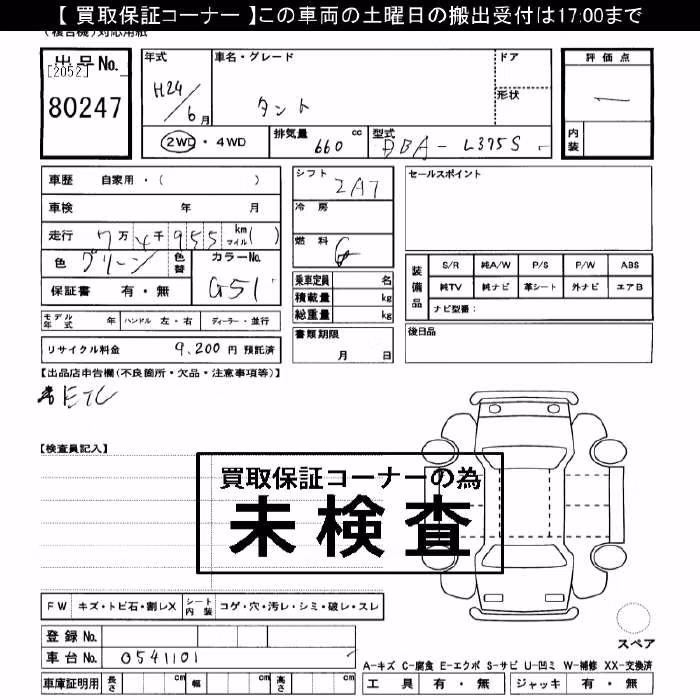 【 買取保証コーナー 】この車両の土曜日の搬出受付は17:00まで
(複合機)対応用紙
出品No.
[2052]
80247
年式
H24/6月
車名・グレード
タント
ドア
形状
評価点
一
内装
2WD・4WD
排気量 660 cc
型式 DBA-L375S
車歴 自家用・( )
車検 年 月
走行 7万4千955 km マイル( )
色 グリーン 色替
カラーNo. G51
保証書 有・無
モデル年式 年 ハンドル 左・右 ディーラー・並行
リサイクル料金 9,200円 預託済
シフト 2A7
冷房
燃料 G
乗車定員 名
積載量 kg
総重量 kg
書類期限
月 日
セールスポイント
装備品
S/R 純A/W P/S P/W ABS
純TV 純ナビ 革シート 外ナビ エアB
ナビ型番:
後日品
【出品店申告欄(不良箇所・欠品・注意事項等)】
ETC
【検査員記入】
買取保証コーナーの為
未検査
FW キズ・トビ石・割レX シート内装 コゲ・穴・汚レ・シミ・破レ・スレ
登録No.
車台No. 0541101
車庫証明用 長さ cm 幅 cm 高さ cm
スペア
A-キズ C-腐食 E-エクボ S-サビ U-凹ミ W-補修 XX-交換済
工具 有・無 ジャッキ 有・無